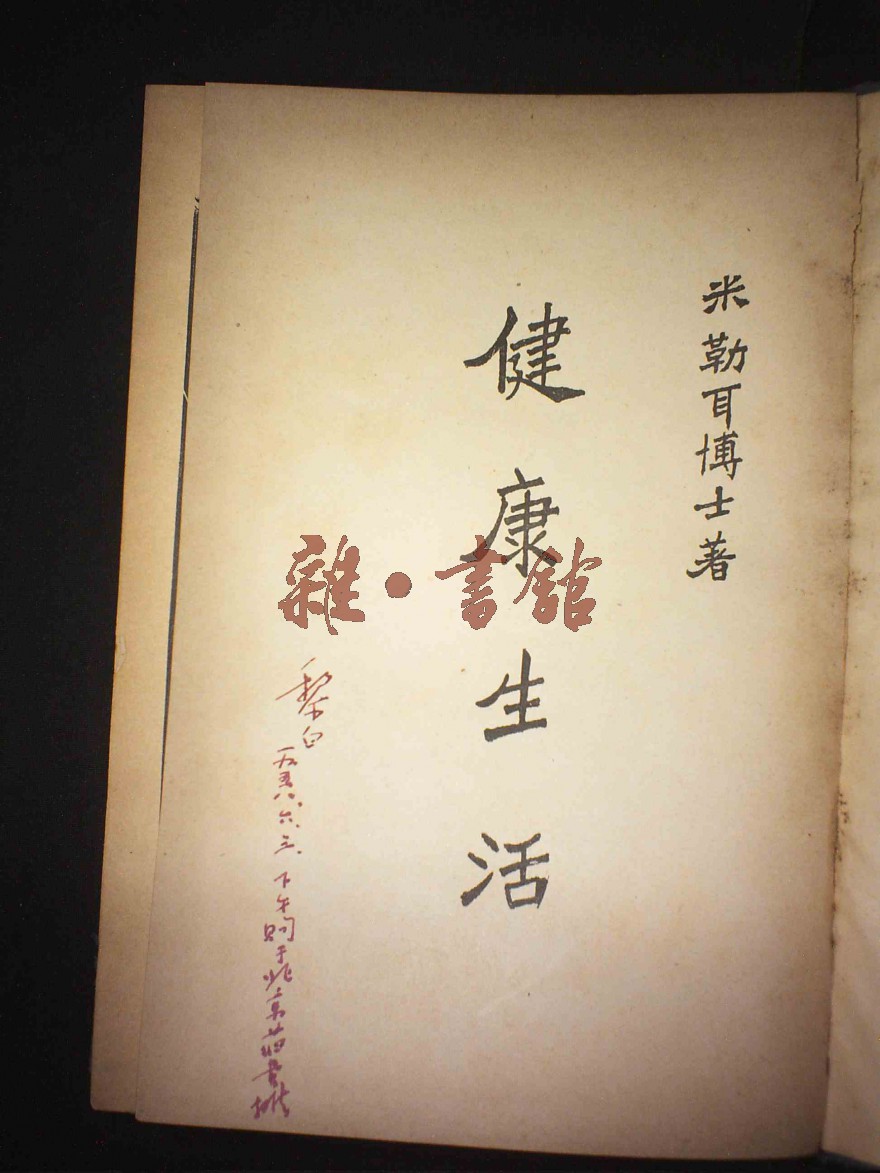 米勒耳博士著
健康生活
雜·書館
黎白 一九五八、六、三、下午购于北京舊書摊